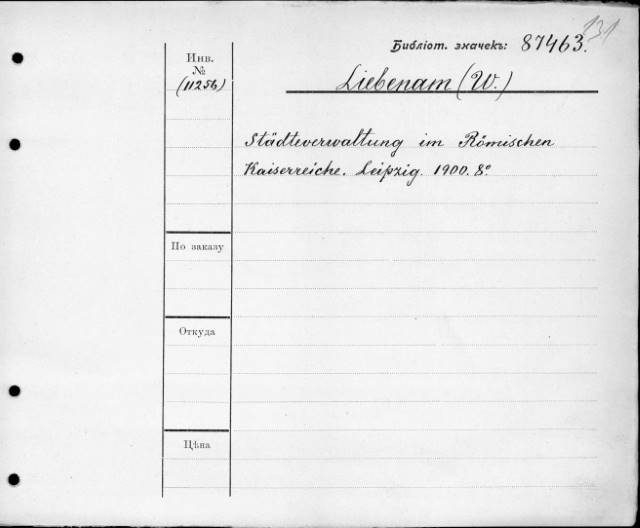 131
Библіот. значекъ: 87463.
Инв.
№
(11256)
Liebenam (W.)
Städteverwaltung im Römischen
Kaiserreiche. Leipzig. 1900. 8º
По заказу
Откуда
Цѣна